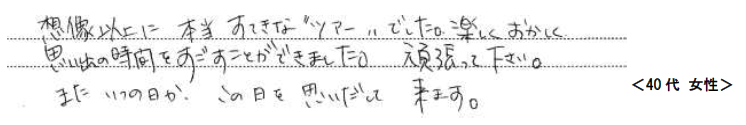 想像以上に 本当 すてきな"ツアー"でした。楽しく おかしく
思い出の時間をすごすことができました。 頑張って下さい。
また いつの日か、 この日を 思いだして 来ます。
<40代 女性>